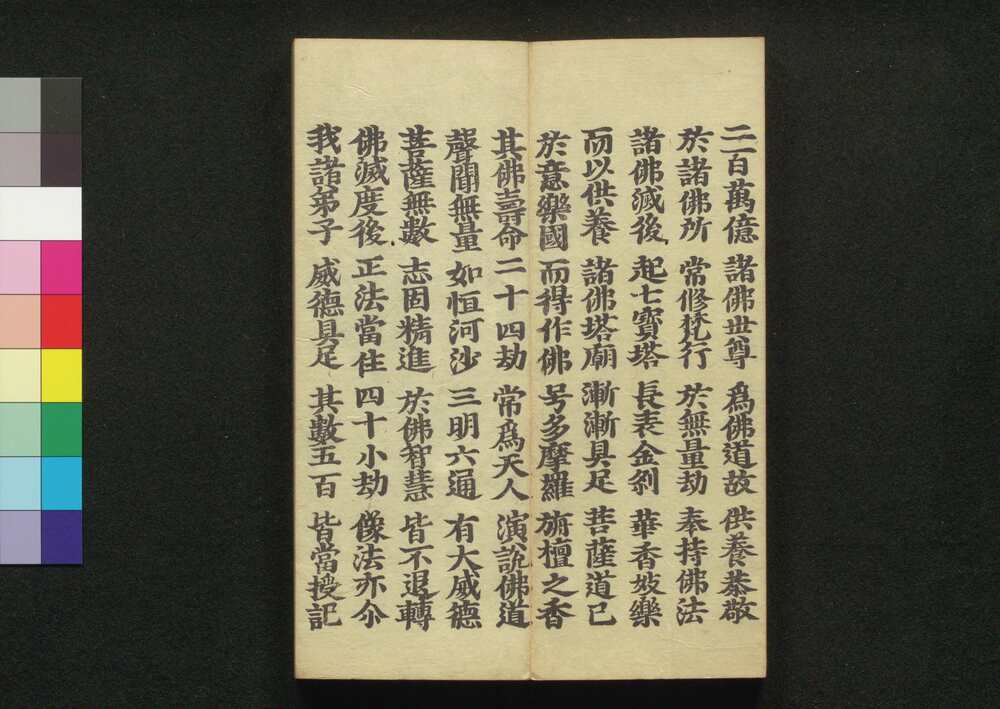 二百萬億 諸佛世尊 爲佛道故 供養恭敬
於諸佛所 常修梵行 於無量劫 奉持佛法
諸佛滅後 起七寳塔 長表金刹 華香妓樂
而以供養 諸佛塔廟 漸漸具足 菩薩道已
於意樂國 而得作佛 号多摩羅 旃檀之香
其佛壽命 二十四劫 常爲天人 演說佛道
聲聞無量 如恒河沙 三明六通 有大威德
菩薩無數 志固精進 於佛智慧 皆不退轉
佛滅度後 正法當住 四十小劫 像法亦尒
我諸弟子 威德具足 其數五百 皆當授記